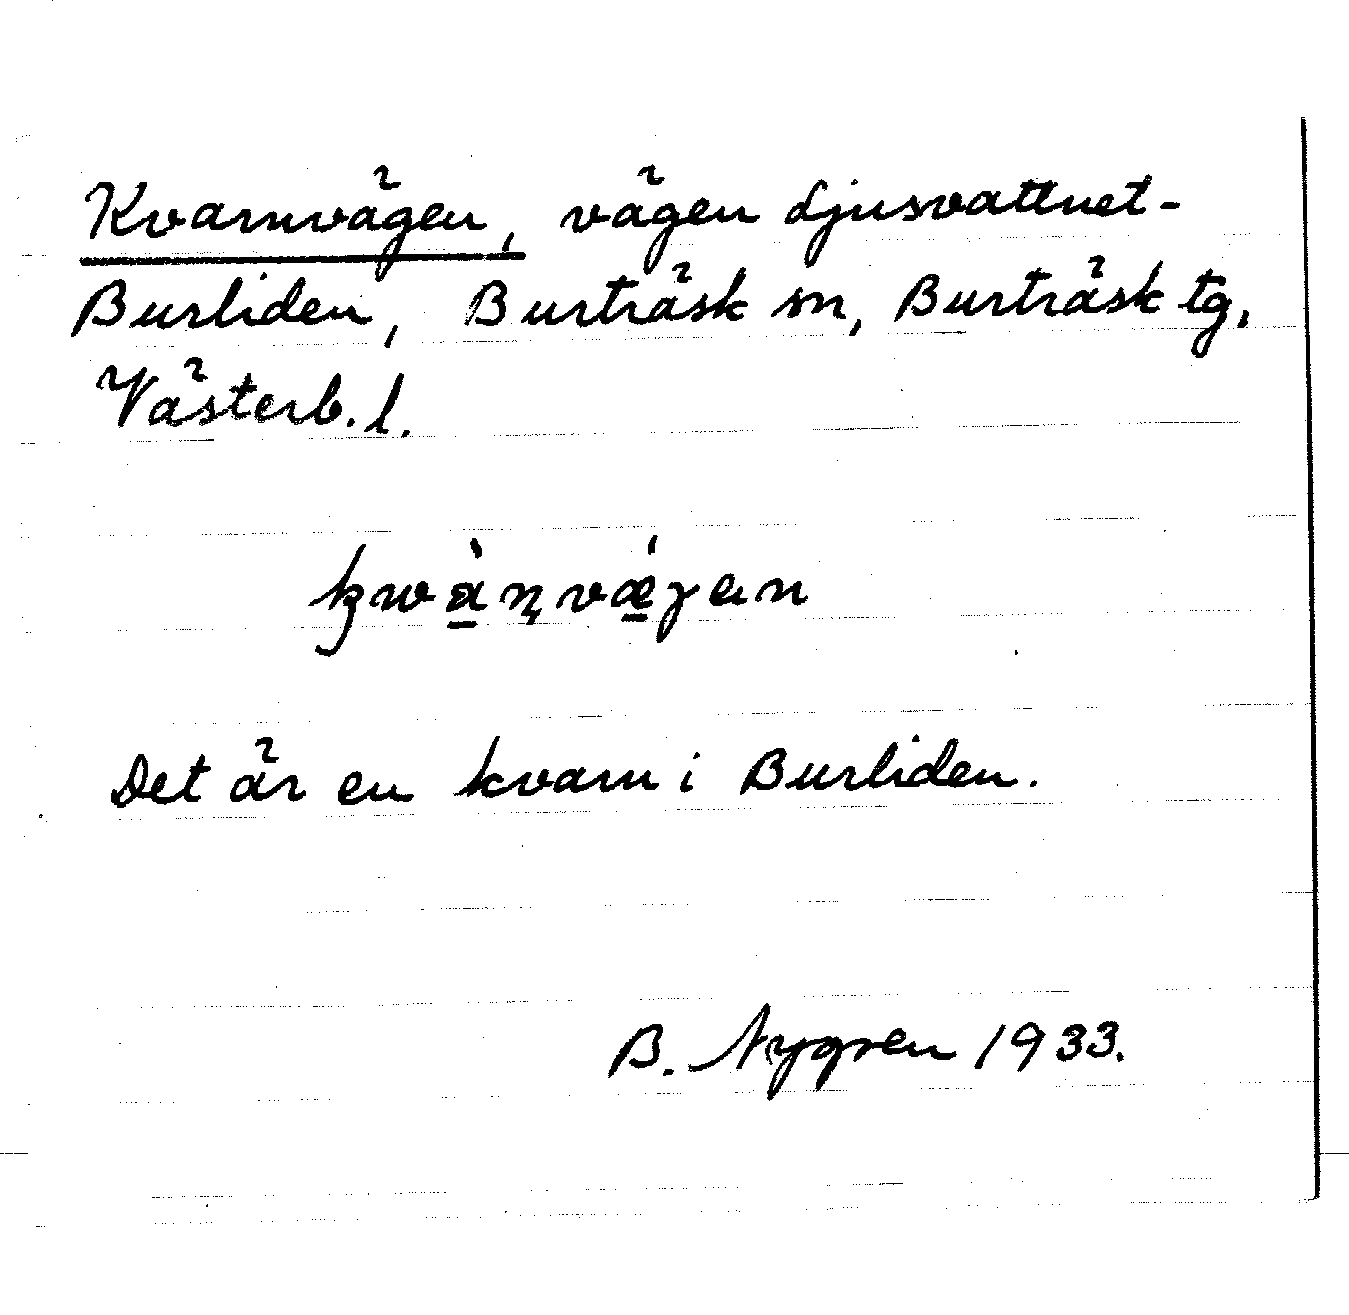 Kvarnvägen, vägen Ljusvattnet-
Burliden, Burträsk sn, Burträsk tg,
Västerb. l.
kwànvǽgen
Det är en kvarn i Burliden.
B. Nygren 1933.